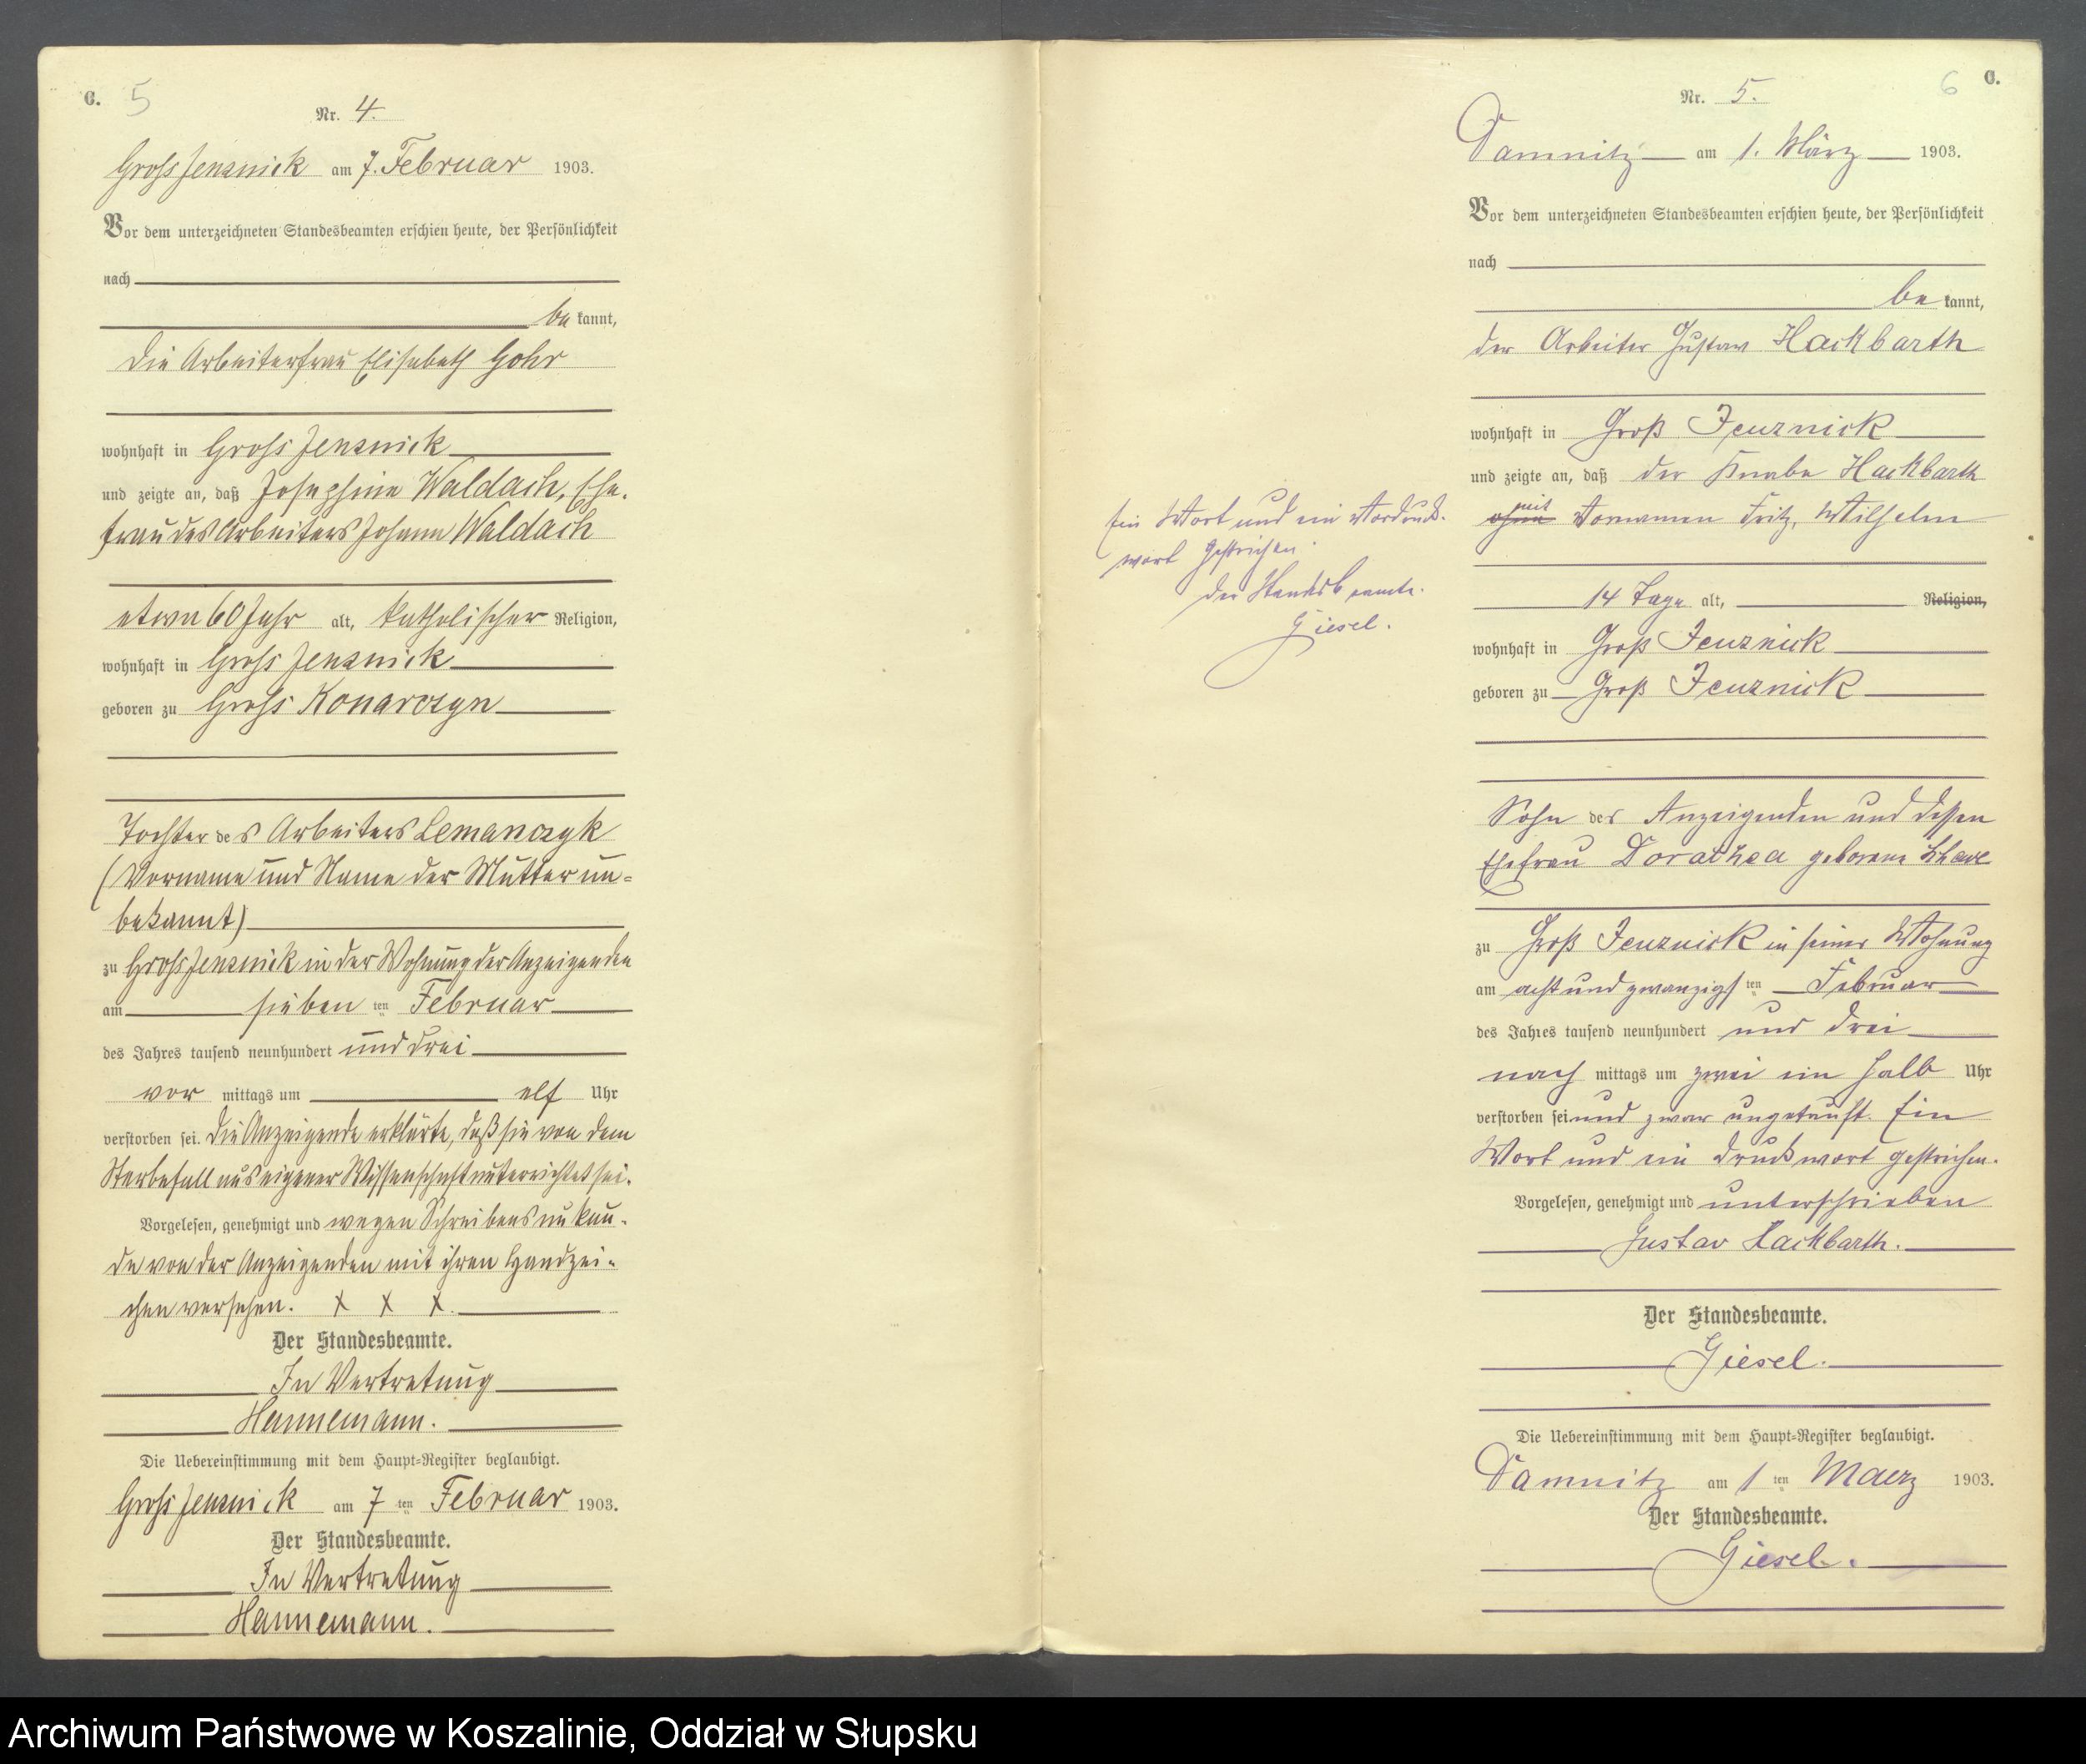 C. 5
Nr. 4.
Gross Jenznick am 7. Februar 1903.
Vor dem unterzeichneten Standesbeamten erschien heute, der Persönlichkeit
nach
be kannt,
die Arbeiterfrau Elisabeth Gohr
wohnhaft in Gross Jenznick
und zeigte an, daß Josephine Waldach, Ehe-
frau des Arbeiters Johann Waldach
etwa 60 Jahr alt, katholischer Religion,
wohnhaft in Gross Jenznick
geboren zu Gross Konarczyn
Tochter des Arbeiters Lemanczyk
(Vorname und Name der Mutter un-
bekannt)
zu Gross Jenznick in der Wohnung der Anzeigenden
am sieben ten Februar
des Jahres tausend neunhundert und drei
vor mittags um elf Uhr
verstorben sei. Die Anzeigende erklärte, daß sie von dem
Sterbefall aus eigener Wissenschaft unterrichtet sei.
Vorgelesen, genehmigt und wegen Schreibensunkun-
de von der Anzeigenden mit ihren Handzei-
chen versehen. X X X.
Der Standesbeamte.
In Vertretung
Hannemann.
Die Uebereinstimmung mit dem Haupt-Register beglaubigt.
Gross Jenznick am 7 ten Februar 1903.
Der Standesbeamte.
In Vertretung
Hannemann.
Ein Wort und ein Vordruck-
wort gestrichen.
Der Standesbeamte.
Giesel.
6 C.
Nr. 5.
Damnitz am 1. März 1903.
Vor dem unterzeichneten Standesbeamten erschien heute, der Persönlichkeit
nach
be kannt,
der Arbeiter Gustav Hackbarth
wohnhaft in Groß Jenznick
und zeigte an, daß der Knabe Hackbarth
mit
ohne Vornamen Fritz, Wilhelm
14 Tage alt, Religion,
wohnhaft in Groß Jenznick
geboren zu Groß Jenznick
Sohn des Anzeigenden und dessen
Ehefrau Dorathea geborene
zu Groß Jenznick in seiner Wohnung
am acht und zwanzigs ten Februar
des Jahres tausend neunhundert und drei
nach mittags um zwei ein halb Uhr
verstorben sei und zwar ungetauft. Ein
Wort und ein Druckwort gestrichen.
Vorgelesen, genehmigt und unterschrieben
Gustav Hackbarth.
Der Standesbeamte.
Giesel.
Die Uebereinstimmung mit dem Haupt-Register beglaubigt.
Damnitz am 1 ten Maerz 1903.
Der Standesbeamte.
Giesel.
Archiwum Państwowe w Koszalinie, Oddział w Słupsku